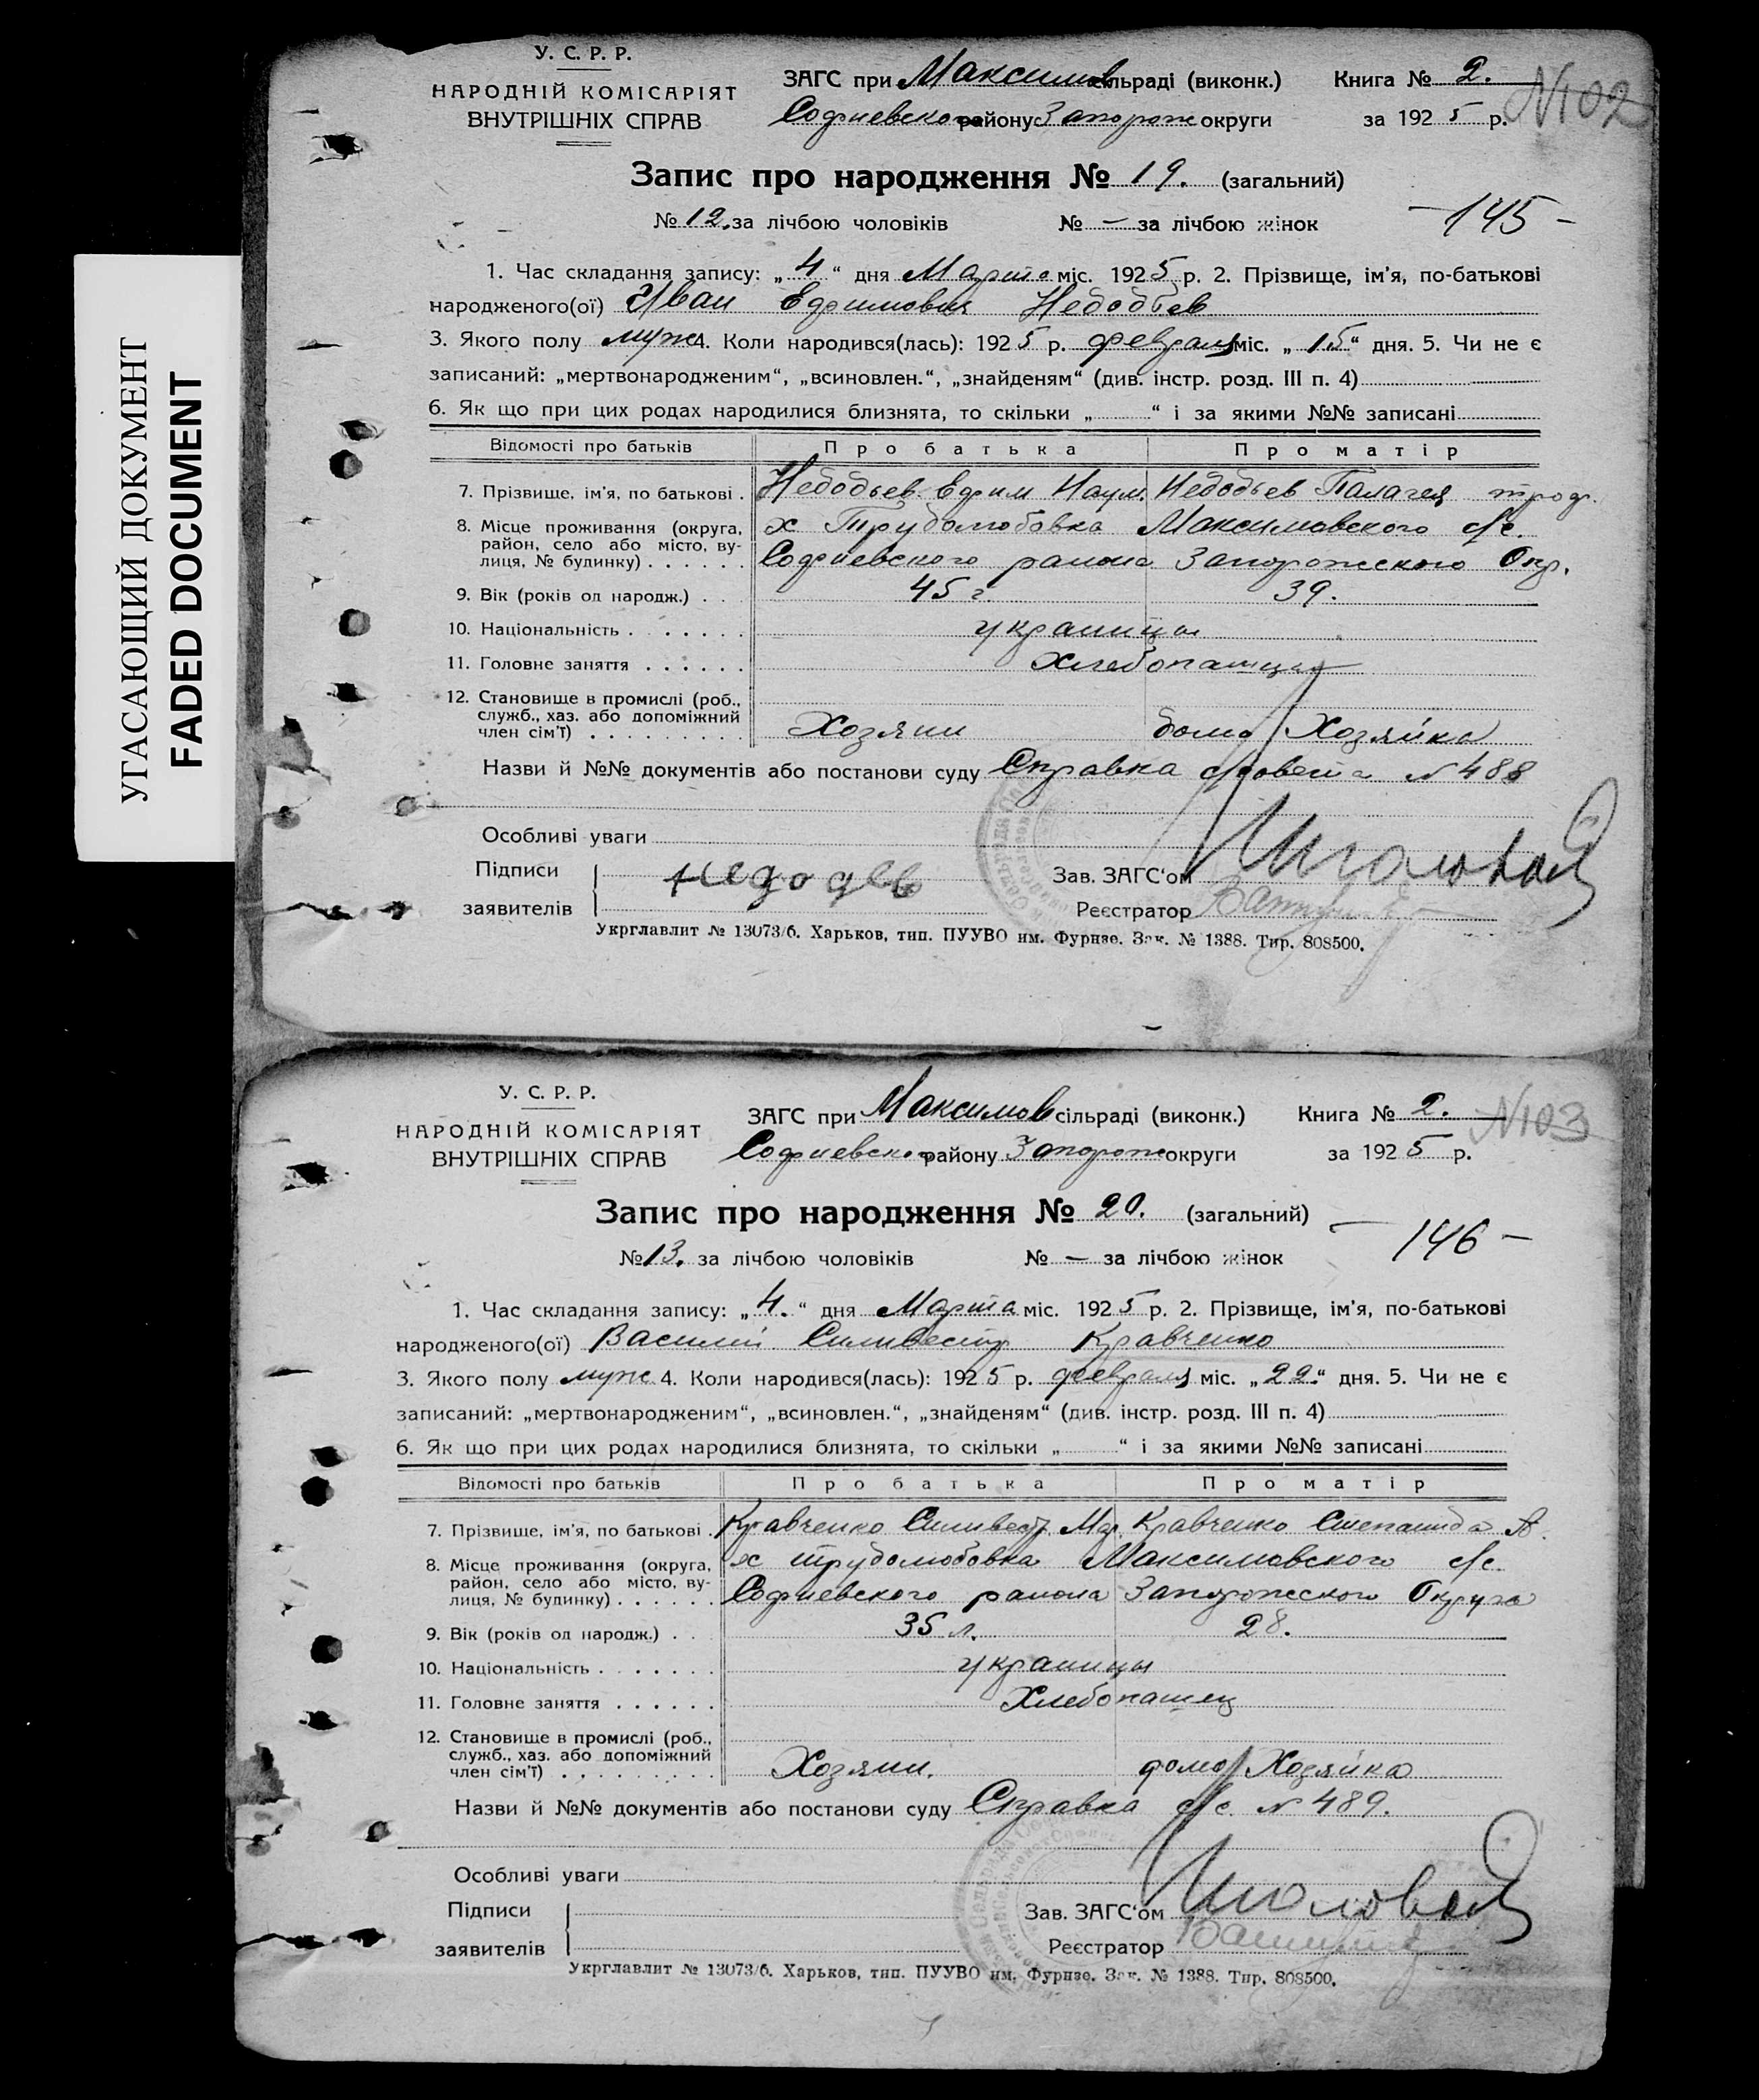 УГАСАЮЩИЙ ДОКУМЕНТ
FADED DOCUMENT
У. С. Р. Р.
НАРОДНІЙ КОМІСАРІЯТ
ВНУТРІШНІХ СПРАВ
ЗАГС при Максимов сільраді (виконк.) Книга № 2.
Софиевского району Запорож округи за 1925 р.
N102
Запис про народження № 19. (загальний)
№ 12. за лічбою чоловіків № — за лічбою жінок
-145-
1. Час складання запису: „4“ дня Марта міс. 1925 р. 2. Прізвище, ім’я, по-батькові
народженого(ої) Иван Ефимович Недодьев
3. Якого полу муж 4. Коли народився(лась): 1925 р. февраля міс. „15“ дня. 5. Чи не є
записаний: „мертвонародженим“, „всиновлен.“, „знайденям“ (див. інстр. розд. III п. 4)
6. Як що при цих родах народилися близнята, то скільки „ “ і за якими №№ записані
Відомості про батьків Про батька Про матір
7. Прізвище, ім’я, по батькові . Недодьев Ефим Наум. Недодьев Палагея
8. Місце проживання (округа, район, село або місто, вулиця, № будинку) х Трудолюбовка Максимовского с/с.
Софиевского района Запорожского Окр.
9. Вік (років од народж.) 45 г. 39.
10. Національність украинцы
11. Головне заняття Хлебопашцы
12. Становище в промислі (роб., служб., хаз. або допоміжний член сім’ї) Хозяин домо/Хозяйка
Назви й №№ документів або постанови суду Справка с/совета № 488
Особливі уваги
Підписи
заявителів
Недодев
Зав. ЗАГС‘ом
Реєстратор
Укрглавлит № 13073/6. Харьков, тип. ПУУВО им. Фурнзе. Зак. № 1388. Тир. 808500.
У. С. Р. Р.
НАРОДНІЙ КОМІСАРІЯТ
ВНУТРІШНІХ СПРАВ
ЗАГС при Максимов сільраді (виконк.) Книга № 2.
Софиевского району Запорож округи за 1925 р.
N103
Запис про народження № 20. (загальний)
№ 13. за лічбою чоловіків № — за лічбою жінок
146-
1. Час складання запису: „4.“ дня Марта міс. 1925 р. 2. Прізвище, ім’я, по-батькові
народженого(ої) Василий Силивестр Кравченко
3. Якого полу муж. 4. Коли народився(лась): 1925 р. февраля міс. „22.“ дня. 5. Чи не є
записаний: „мертвонародженим“, „всиновлен.“, „знайденям“ (див. інстр. розд. III п. 4)
6. Як що при цих родах народилися близнята, то скільки „ “ і за якими №№ записані
Відомості про батьків Про батька Про матір
7. Прізвище, ім’я, по батькові . Кравченко Силивестр Кравченко Степанида А.
8. Місце проживання (округа, район, село або місто, вулиця, № будинку) х трудолюбовка Максимовского с/с.
Софиевского района Запорожского Округа
9. Вік (років од народж.) 35 л. 28.
10. Національність украинцы
11. Головне заняття Хлебопашец
12. Становище в промислі (роб., служб., хаз. або допоміжний член сім’ї) Хозяин. домо/Хозяйка
Назви й №№ документів або постанови суду Справка с/с. № 489.
Особливі уваги
Підписи
заявителів
Зав. ЗАГС‘ом
Реєстратор
Укрглавлит № 13073/6. Харьков, тип. ПУУВО им. Фурнзе. Зак. № 1388. Тир. 808500.